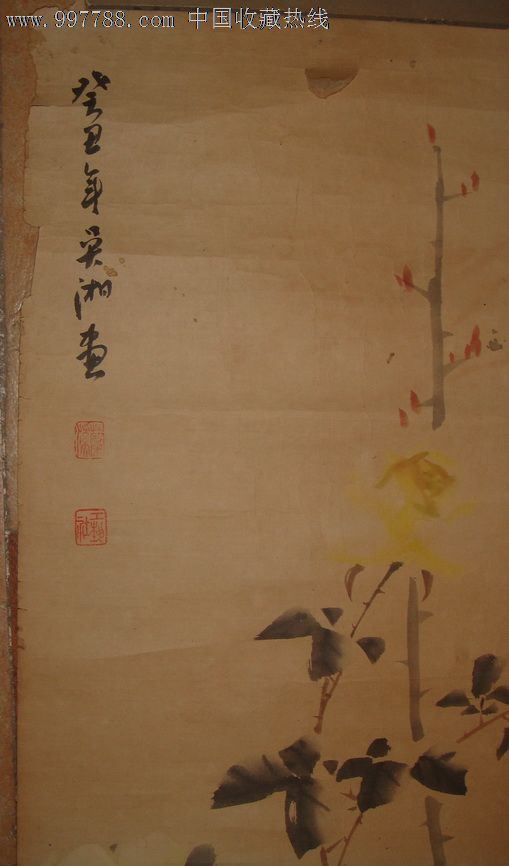 www.997788.com 中国收藏热线
癸丑年吴湘画